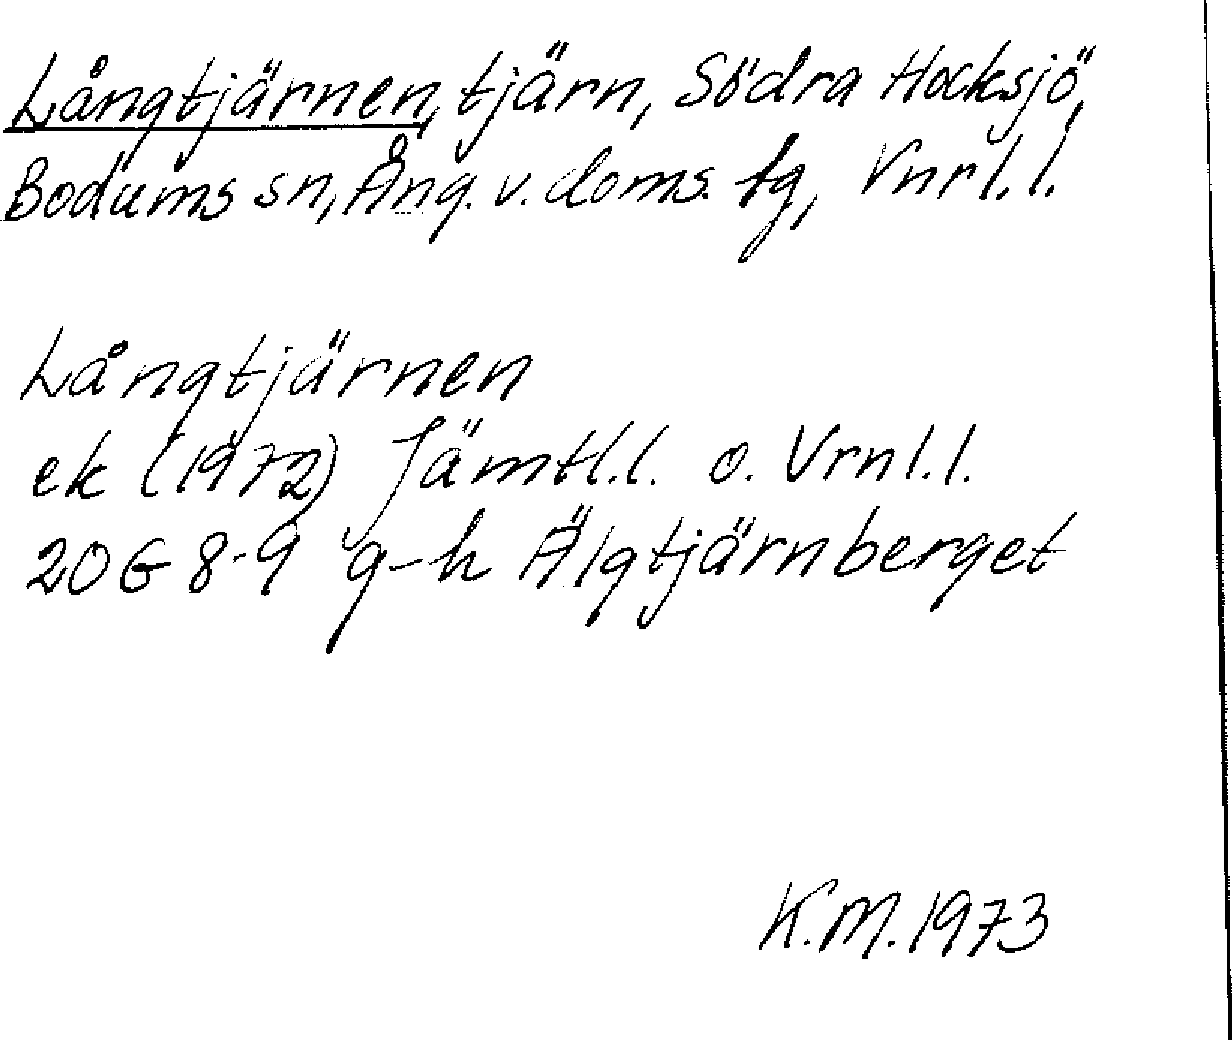 Långtjärnen, tjärn, Södra Hocksjö,
Bodums sn, Ång. v. doms. tg, Vnrl.l.
Långtjärnen
ek (1972) Jämtl.l. o. Vrnl.l.
20G 8-9 g-h Älgtjärnberget
K.M. 1973